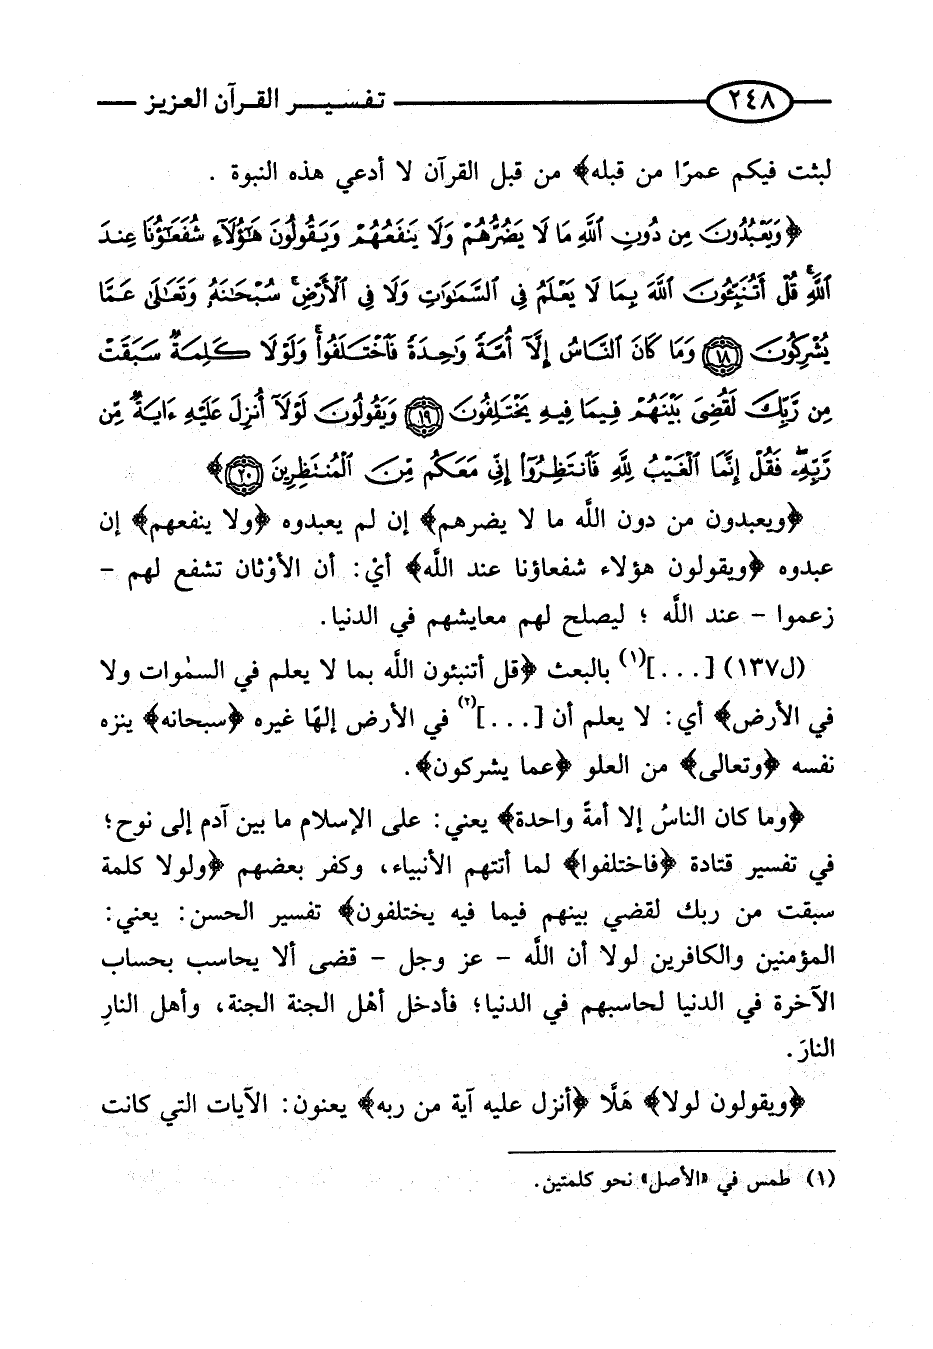 ٢٤٨ تفسير القرآن العزيز
لبثت فيكم عمرًا من قبله﴾ من قبل القرآن لا أدعي هذه النبوة .
﴿وَيَعْبُدُونَ مِن دُونِ ٱللَّهِ مَا لَا يَضُرُّهُمْ وَلَا يَنفَعُهُمْ وَيَقُولُونَ هَٰٓؤُلَآءِ شُفَعَٰٓؤُنَا عِندَ
ٱللَّهِ ۚ قُلْ أَتُنَبِّـُٔونَ ٱللَّهَ بِمَا لَا يَعْلَمُ فِى ٱلسَّمَٰوَٰتِ وَلَا فِى ٱلْأَرْضِ ۚ سُبْحَٰنَهُۥ وَتَعَٰلَىٰ عَمَّا
يُشْرِكُونَ ١٨ وَمَا كَانَ ٱلنَّاسُ إِلَّآ أُمَّةً وَٰحِدَةً فَٱخْتَلَفُوا۟ ۚ وَلَوْلَا كَلِمَةٌ سَبَقَتْ
مِن رَّبِّكَ لَقُضِىَ بَيْنَهُمْ فِيمَا فِيهِ يَخْتَلِفُونَ ١٩ وَيَقُولُونَ لَوْلَآ أُنزِلَ عَلَيْهِ ءَايَةٌ مِّن
رَّبِّهِۦ ۖ فَقُلْ إِنَّمَا ٱلْغَيْبُ لِلَّهِ فَٱنتَظِرُوٓا۟ إِنِّى مَعَكُم مِّنَ ٱلْمُنتَظِرِينَ ٢٠﴾
﴿ويعبدون من دون اللَّه ما لا يضرهم﴾ إن لم يعبدوه ﴿ولا ينفعهم﴾ إن
عبدوه ﴿ويقولون هؤلاء شفعاؤنا عند اللَّه﴾ أيْ: أن الأوْثان تشفع لهم -
زعموا - عند اللَّه ؛ ليصلح لهم معايشهم في الدنيا.
(ل١٣٧) [...](١) بالبعث ﴿قل أتنبئون اللَّه بما لا يعلم في السمٰوات ولا
في الأرض﴾ أي: لا يعلم أن [...](٢) في الأرض إلهًا غيره ﴿سبحانه﴾ ينزه
نفسه ﴿وتعالى﴾ من العلو ﴿عما يشركون﴾.
﴿وما كان الناسُ إلا أمةً واحدة﴾ يعني: على الإسلام ما بين آدم إلى نوح؛
في تفسير قتادة ﴿فاختلفوا﴾ لما أتتهم الأنبياء، وكفر بعضهم ﴿ولولا كلمة
سبقت من ربك لقضي بينهم فيما فيه يختلفون﴾ تفسير الحسن: يعني:
المؤمنين والكافرين لولا أن اللَّه - عز وجل - قضى ألا يحاسب بحساب
الآخرة في الدنيا لحاسبهم في الدنيا؛ فأدخل أهْل الجنة الجنة، وأهل النارِ
النارَ.
﴿ويقولون لولا﴾ هَلَّا ﴿أنزل عليه آية من ربه﴾ يعنون: الآيات التي كانت
(١) طمس في «الأصل» نحو كلمتين.